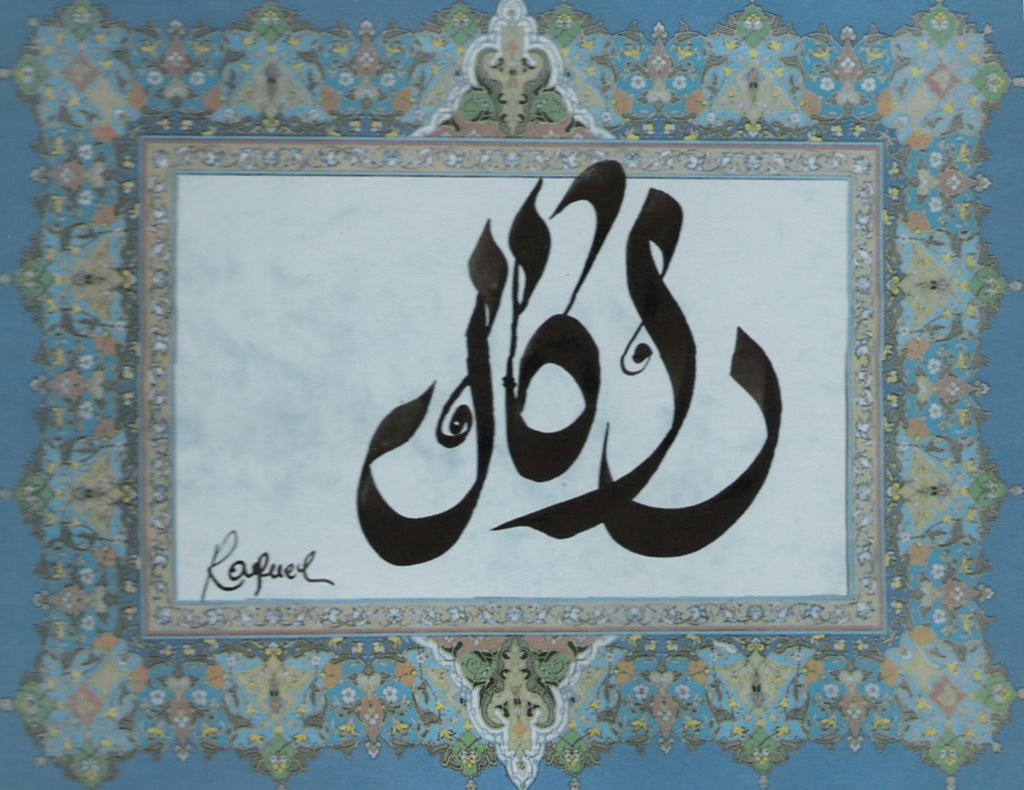 راكل
Raquel